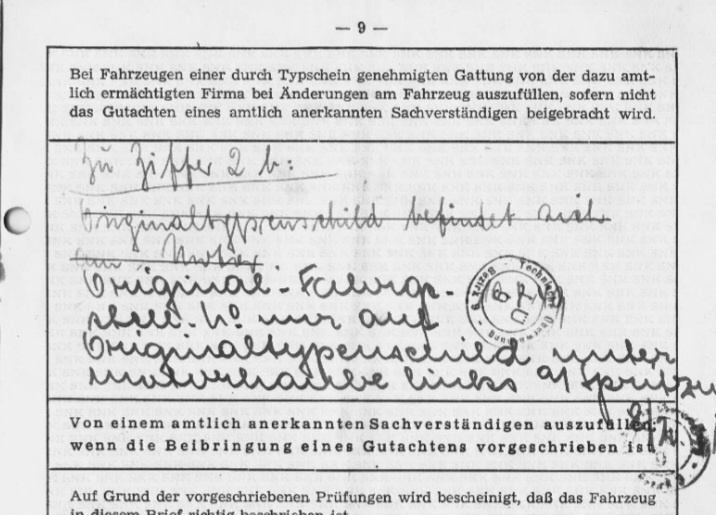 — 9 —
Bei Fahrzeugen einer durch Typschein genehmigten Gattung von der dazu amt-
lich ermächtigten Firma bei Änderungen am Fahrzeug auszufüllen, sofern nicht
das Gutachten eines amtlich anerkannten Sachverständigen beigebracht wird.
Zu Ziffer 2 b:
Originaltypenschild befindet sich
am Motor
Original-Fahrge-
stell-No nur auf
Originaltypenschild unter
Motorhaube links
Von einem amtlich anerkannten Sachverständigen auszufüllen,
wenn die Beibringung eines Gutachtens vorgeschrieben ist.
Auf Grund der vorgeschriebenen Prüfungen wird bescheinigt, daß das Fahrzeug
in diesem Brief richtig beschrieben ist